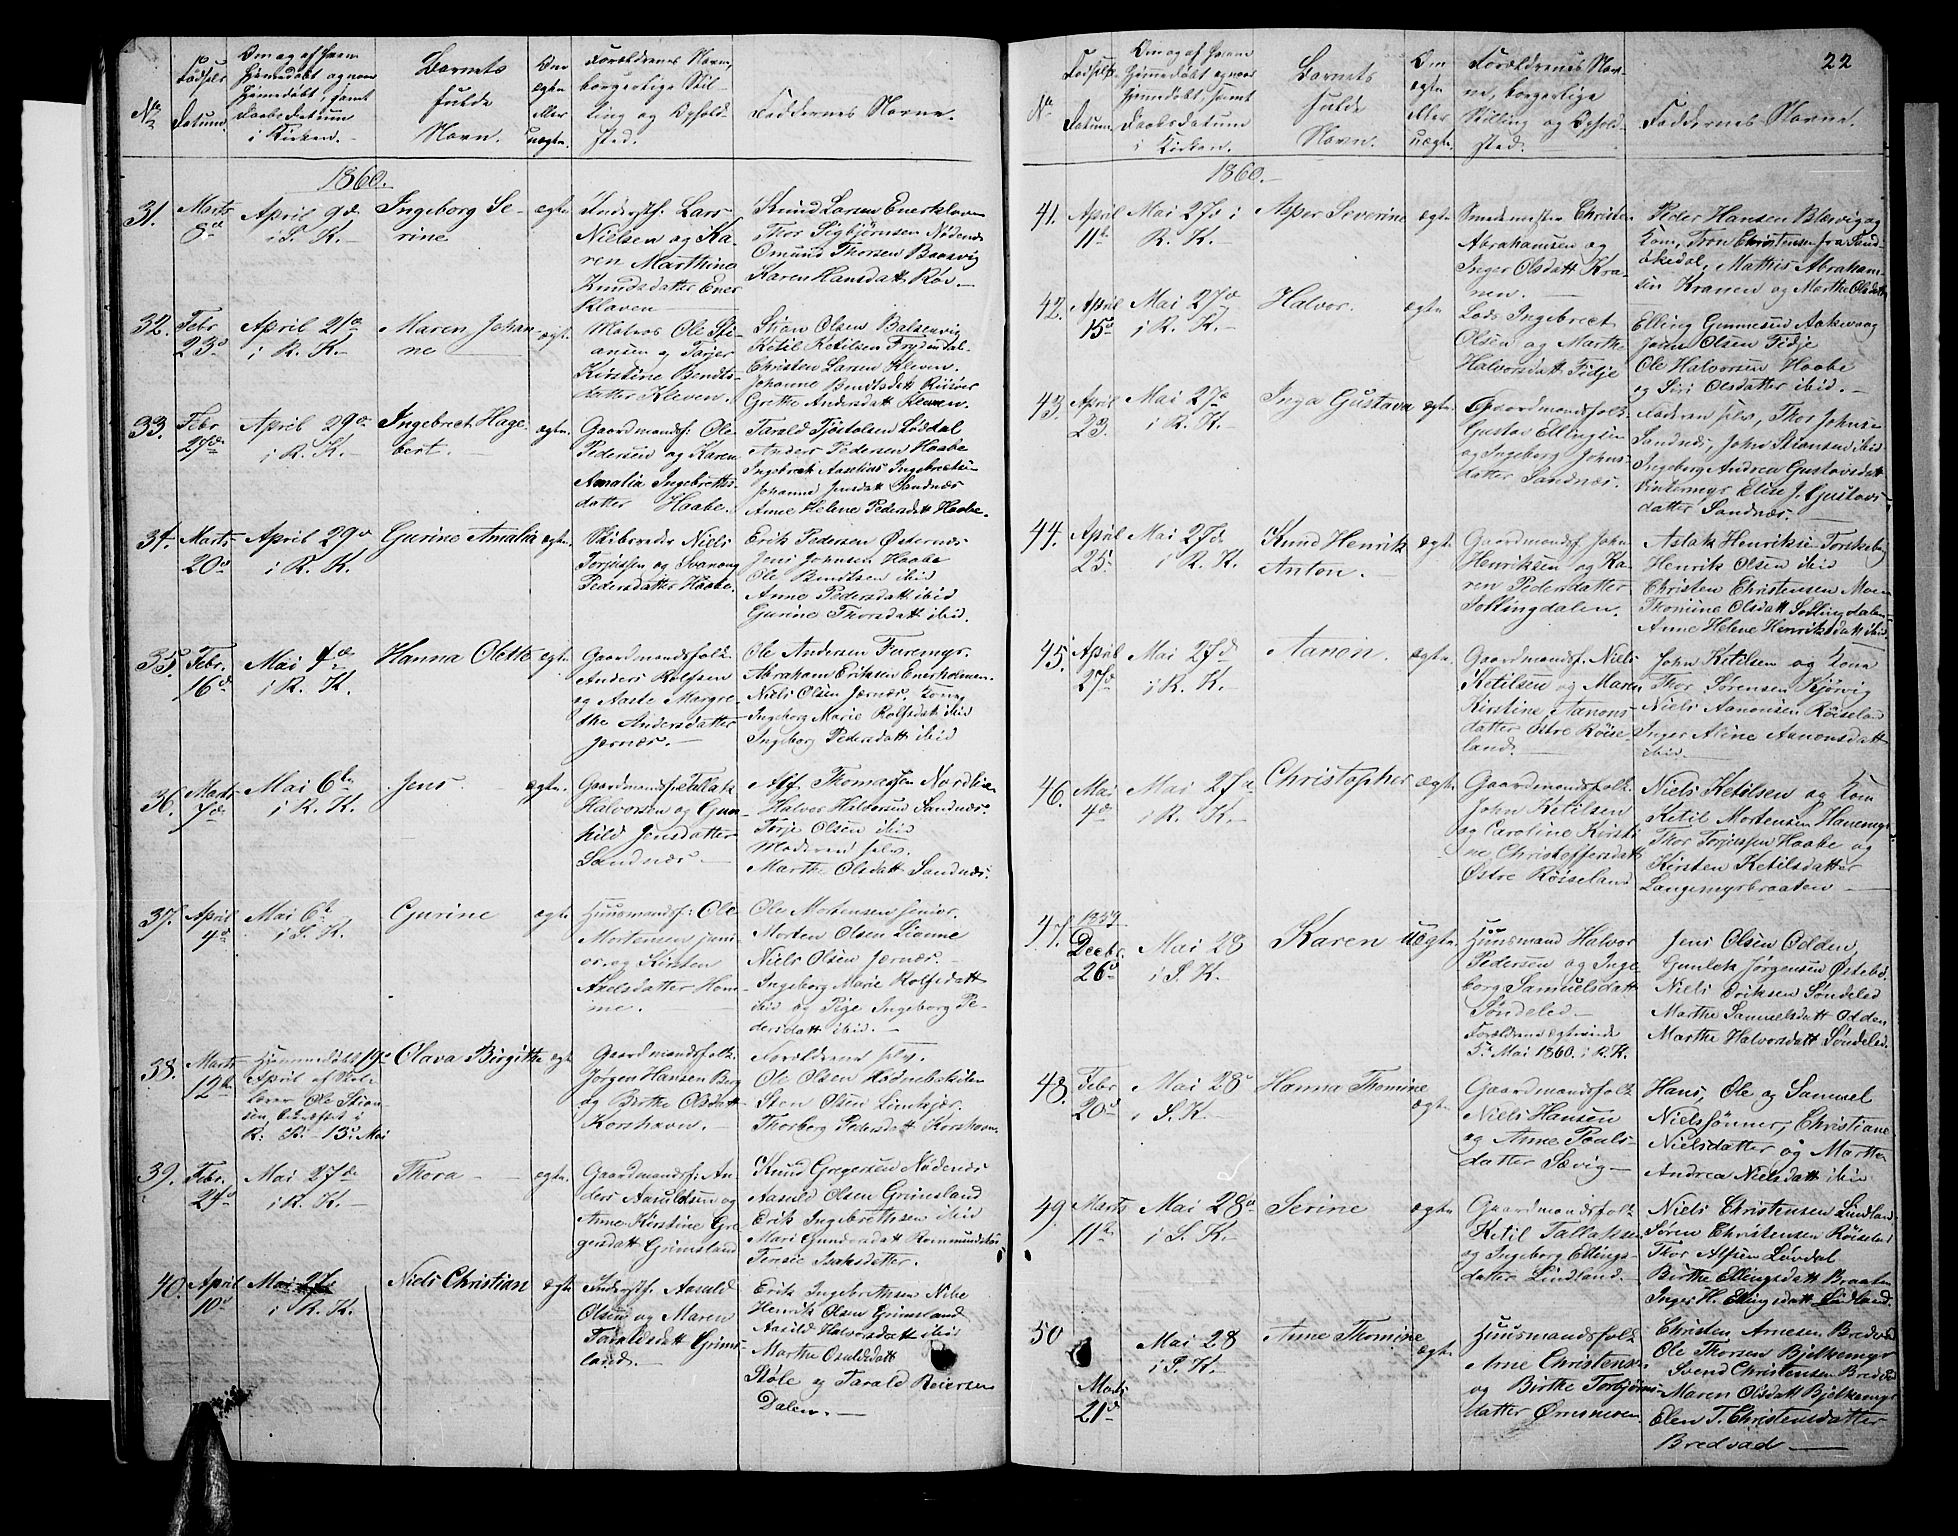 No
Fødsels
Datum.
Om og af hvem
hjemmedøbt og naar
hjemmedøbt, samt
Daabs Datum
i Kirken.
Barnets
fulde
Navn.
Om
ægte
eller
uægte.
Forældrenes Navne,
borgerlige Stil-
ling og Ophold-
sted.
Faddernes Navne.
1860.
31. Marts
8de
April 9de
i S. K.
Ingeborg Se-
rine
ægte
Inderstf. Lars
Nielsen og Ka-
ren Marthine
Knudsdatter Ener
Klaven
Knud Larsen Enerklaven
Thor Sigbjørnsen Nødenæs
Omund Thorsen Baasvig
Karen Hansdatt Røv.
32. Febr
23d
April 21de
i R. K.
Maren Johan-
ne
ægte.
Matros Ole Sti-
ansen og Tarjer
Kirstine Bendts-
datter Kleven.
Stian Olsen Balsenvig
Ketil Ketilsen Frydendal
Christen Larsen Kleven.
Johanne Bendtsdatt Riisøer
Grethe Andersdatt Kleven.
33. Febr
27de
April 29de
i R. K.
Ingebret Hage-
bert.
ægte.
Gaardmandsf: Ole
Pedersen og Karen
Amalia Ingebretts-
datter Haabe.
Tarald Tjøstolsen Lødal
Anders Pedersen Haabe
Ingebreth Aanelius Ingebretsen
Johanne Jensdatt Sandnæs
Anne Helene Pedersdatt Haabe.
34. Marts
20de
April 29de
i R. K.
Gurine Amalia
ægte.
Skibsreder Niels
Torjussen og Svanoug
Pedersdatter Haabe.
Erik Pedersen Østernæs
Jens Johnsen Haabe
Ole Bendtsen ibid
Anne Pedersdatt ibid
Gurine Thorsdatt ibid.
35. Febr.
16d
Mai 4de
i R. K.
Hanna Olette
ægte.
Gaardmandsfolk.
Anders Rolfsen
og Aaste Margre-
the Andersdatter
Jernæs.
Ole Andersen Furemyr.
Abraham Eriksen Enerholmen.
Niels Olsen Jernæs, Kone
Ingeborg Marie Rolfsdatt ibid
Ingeborg Pedersdatt ibid
36. Marts
7de
Mai 6te
i R. K.
Jens.
ægte.
Gaardmandsf: Tallak
Halvorsen og Gun-
hild Jensdatter
Sandnæs.
Alf Thomassen Nordlien
Halvor Halvorsen Sandnæs.
Terje Olsen ibid
Moderen selv.
Marthe Olsdatt Sandnæs.
37. April
4de
Mai 6te
i S. K.
Gurine
ægte.
Huusmandsf: Ole
Mortensen juni-
or. og Kirsten
Axelsdatter Hom-
me.
Ole Mortensen senior.
Morten Olsen Lianne
Niels Olsen Jernæs.
Ingeborg Marie Rolfsdatt
ibid og Pige Ingeborg Pe-
dersdatt ibid.
38. Marts
12te
Hjemmedøbt 19de
April af Skole-
lærer Ole Stian-
sen, bekræftet i
R. K. 13de Mai
Olava Birgitte
ægt.
Gaardmandsfolk.
Jørgen Hansen Berg
og Birthe Olsdatt
Korshavn.
Forældrene selv.
Ole Olsen Hødnebøkilen
Sten Olsen Linkjær.
Thorberg Pedersdatt Korshavn
39. Febr.
24de
Mai 27de
i R. K.
Thora
ægte.
Gaardmandsf: An-
ders Aasuldsen og
Anne Kirstine Gre-
gersdatt Grimsland
Knud Gregersen Nødenæs
Aasuld Olsen Grimsland
Erik Ingebrethsen ibid
Mari Gundersdatt
Tensie Isaksdatter.
40. April
10de
Mai 27
i R. K.
Niels Christian
ægte
Inderstf. Aasuld
Olsen og Maren
Taraldsdatt Grims-
land.
Erik Ingebrethsen Nibe
Henrik Olsen Grimsland
Aasuld Halvorsdatt ibid
Marthe Osuldsdatt
Støle og Tarald Reiersen
Dalen.
22
No
Fødsels
Datum.
Om og af hvem
hjemmedøbt og naar
hjemmedøbt, samt
Daabsdatum
i Kirken.
Barnets
fulde
Navn.
Om
ægte
eller
uægte.
Forældrenes Nav-
ne, borgerlige
Stilling og Ophold-
sted.
Faddernes Navne.
1860.
41. April
11te
Mai 27d i
R. K.
Asper Severine
ægte.
Smedemester Christen
Abrahamsen og
Inger Olsdatt Kra-
nen.
Peder Hansen Blervig og
Kone, Tron Christensen fra Sand-
økedal, Mathis Abraham-
sen Kranen og Marthe Olsdatt
42. April
15de
Mai 27de
i R. K.
Halvor.
ægte.
Lods Ingebret
Olsen og Marthe
Halvorsdatt Fidje
Elling Gunnesen Aakevaag
Jens Olsen Fidje
Ole Halvorsen Haabe
og Siri Olsdatter ibid.
43. April
23.
Mai 27de
i R. K.
Inga Gustava
ægte.
Gaardmandsfolk
Gustav Ellingsen
og Ingeborg Johns-
datter Sandnæs.
Faderen selv, Thor Johnsen
Sandnæs, John Stiansen ibid
Ingeborg Andrea Gustavsdatt
Vintermyr Elise J. Gustavs-
datter Sandnæs.
44. April
25.
Mai 27de
i R. K.
Knud Henrik
Anton.
ægte.
Gaardmandsf. John
Henriksen og Ka-
ren Pedersdatter
Sollingdalen.
Aslak Henriksen Torskeberg
Henrik Olsen ibid
Christen Christensen Moen
Thomine Olsdatt Sollingdalen
Anne Helene Henriksdatt ibid.
45. April
27de
Mai 27de
i R. K.
Aanon.
ægte.
Gaardmandsf. Niels
Ketilsen og Maren
Kirstine Aanons-
datter Østre Røise-
land.
John Ketilsen og Kone
Thor Sørensen Kjørvig
Niels Aanonsen Røiseland
Inger Aline Aanonsdatt
ibid.
46. Mai
4de
Mai 27de
i R. K.
Christopher
ægte.
Gaardmandsfolk.
John Ketilsen
og Caroline Kirsti-
ne Christoffersdatt
Østre Røiseland
Niels Ketilsen og Kone
Ketil Mortensen Hanemyr
Thor Torjussen Haabe og
Kirsten Ketilsdatter
Langemyrbraaten
47. 1859
Decbr.
26de
Mai 28
i S. K.
Karen
uægte.
Huusmand Halvor
Pedersen og Inge-
borg Samuelsdatt
Søndeled.
Forældrene ægteviede
5te Mai 1860. i R. K.
Jens Olsen Odden,
Gunlek Jørgensen Østebø
Niels Eriksen Søndeled
Marthe Samuelsdatt Odden
Marthe Halvorsdatt Søndeled.
48. Febr
20de
Mai 28de
i S. K.
Hanna Thomine
ægte.
Gaardmandsfolk
Niels Hansen
og Anne Pouls-
datter Sævig
Hans, Ole og Samuel
Nielssønner, Christiane
Nielsdatter og Marthe
Andrea Nielsdatt ibid
49. Marts
11te
Mai 28de
i S. K.
Serine
ægte
Gaardmandsfolk
Ketil Tallaksen
og Ingeborg Ellings-
datter Lindland.
Niels Christensen Lindland
Søren Christensen Røiseland
Thor Alfsen Løvdal
Birthe Ellingsdatt Braaten
Inger H. Ellingsdatt Lindland.
50
Marts
21de
Mai 28
i S. K.
Anne Thomine
ægte.
Huusmandsfolk
Arne Christensen
og Birthe Torbjørns-
datter Ørnsneven.
Christen Arnesen Bredvad
Ole Thorsen Bjelkemyr
Svend Christensen Bredvad
Maren Olsdatt Bjelkemyr
Elen T. Christensdatter
Bredvad